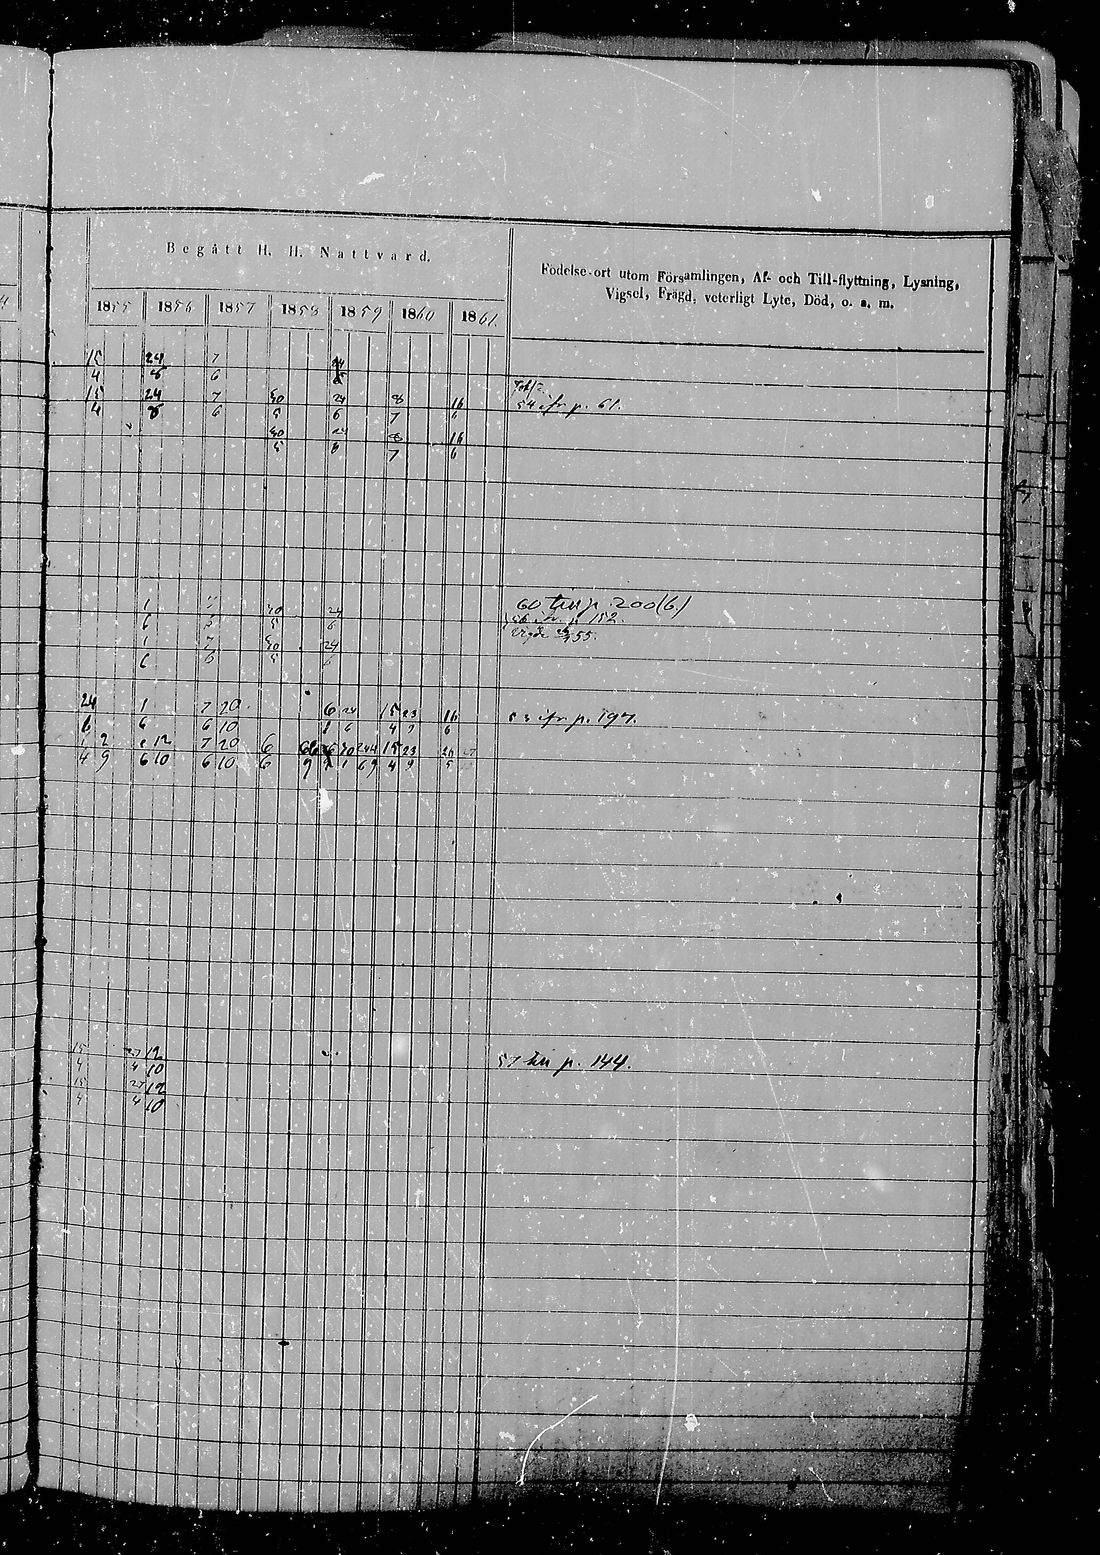 Begått H. H. Nattvard.
Födelse-ort utom Församlingen, Af- och Till-flyttning, Lysning,
Vigsel, Frägd, veterligt Lyte, Död, o. s. m.
1855 1856 1857 1858 1859 1860 1861.
15 24 7 24
4 8 6 6
15 24 7 30 24 8 16
4 8 6 5 6 7 6
54 ifr p. 61.
30 24 8 16
5 6 7 6
60 till p. 200(6)
1 7 30 24
6 6 5 6
56 ifr p 152.
1 7 30 24
6 6 5 6
Vigde 55.
24 1 7 20 6 24 15 23 16
6 6 6 10 6 4 9 6
53 ifr p. 197.
2 12 7 20 6 6 30 24 4 15 23 26
4 9 6 10 6 10 6 9 1 6 9 4 9 5
15 27 12
4 4 10
57 till p. 144.
15 27 12
4 4 10